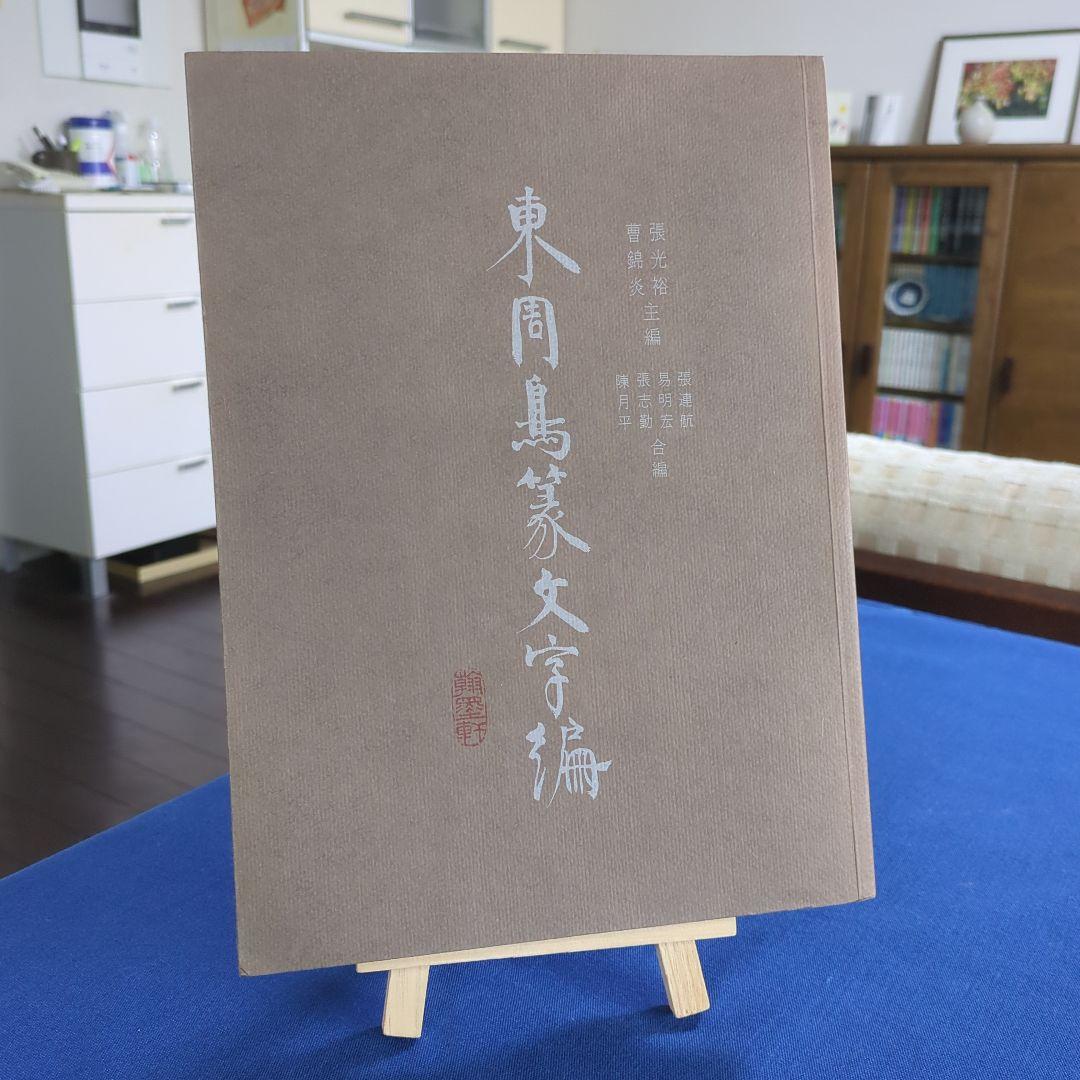 東周鳥篆文字編
張光裕
曹錦炎
主編
張連航
易明宏
張志勤
陳月平
合編
翰墨軒